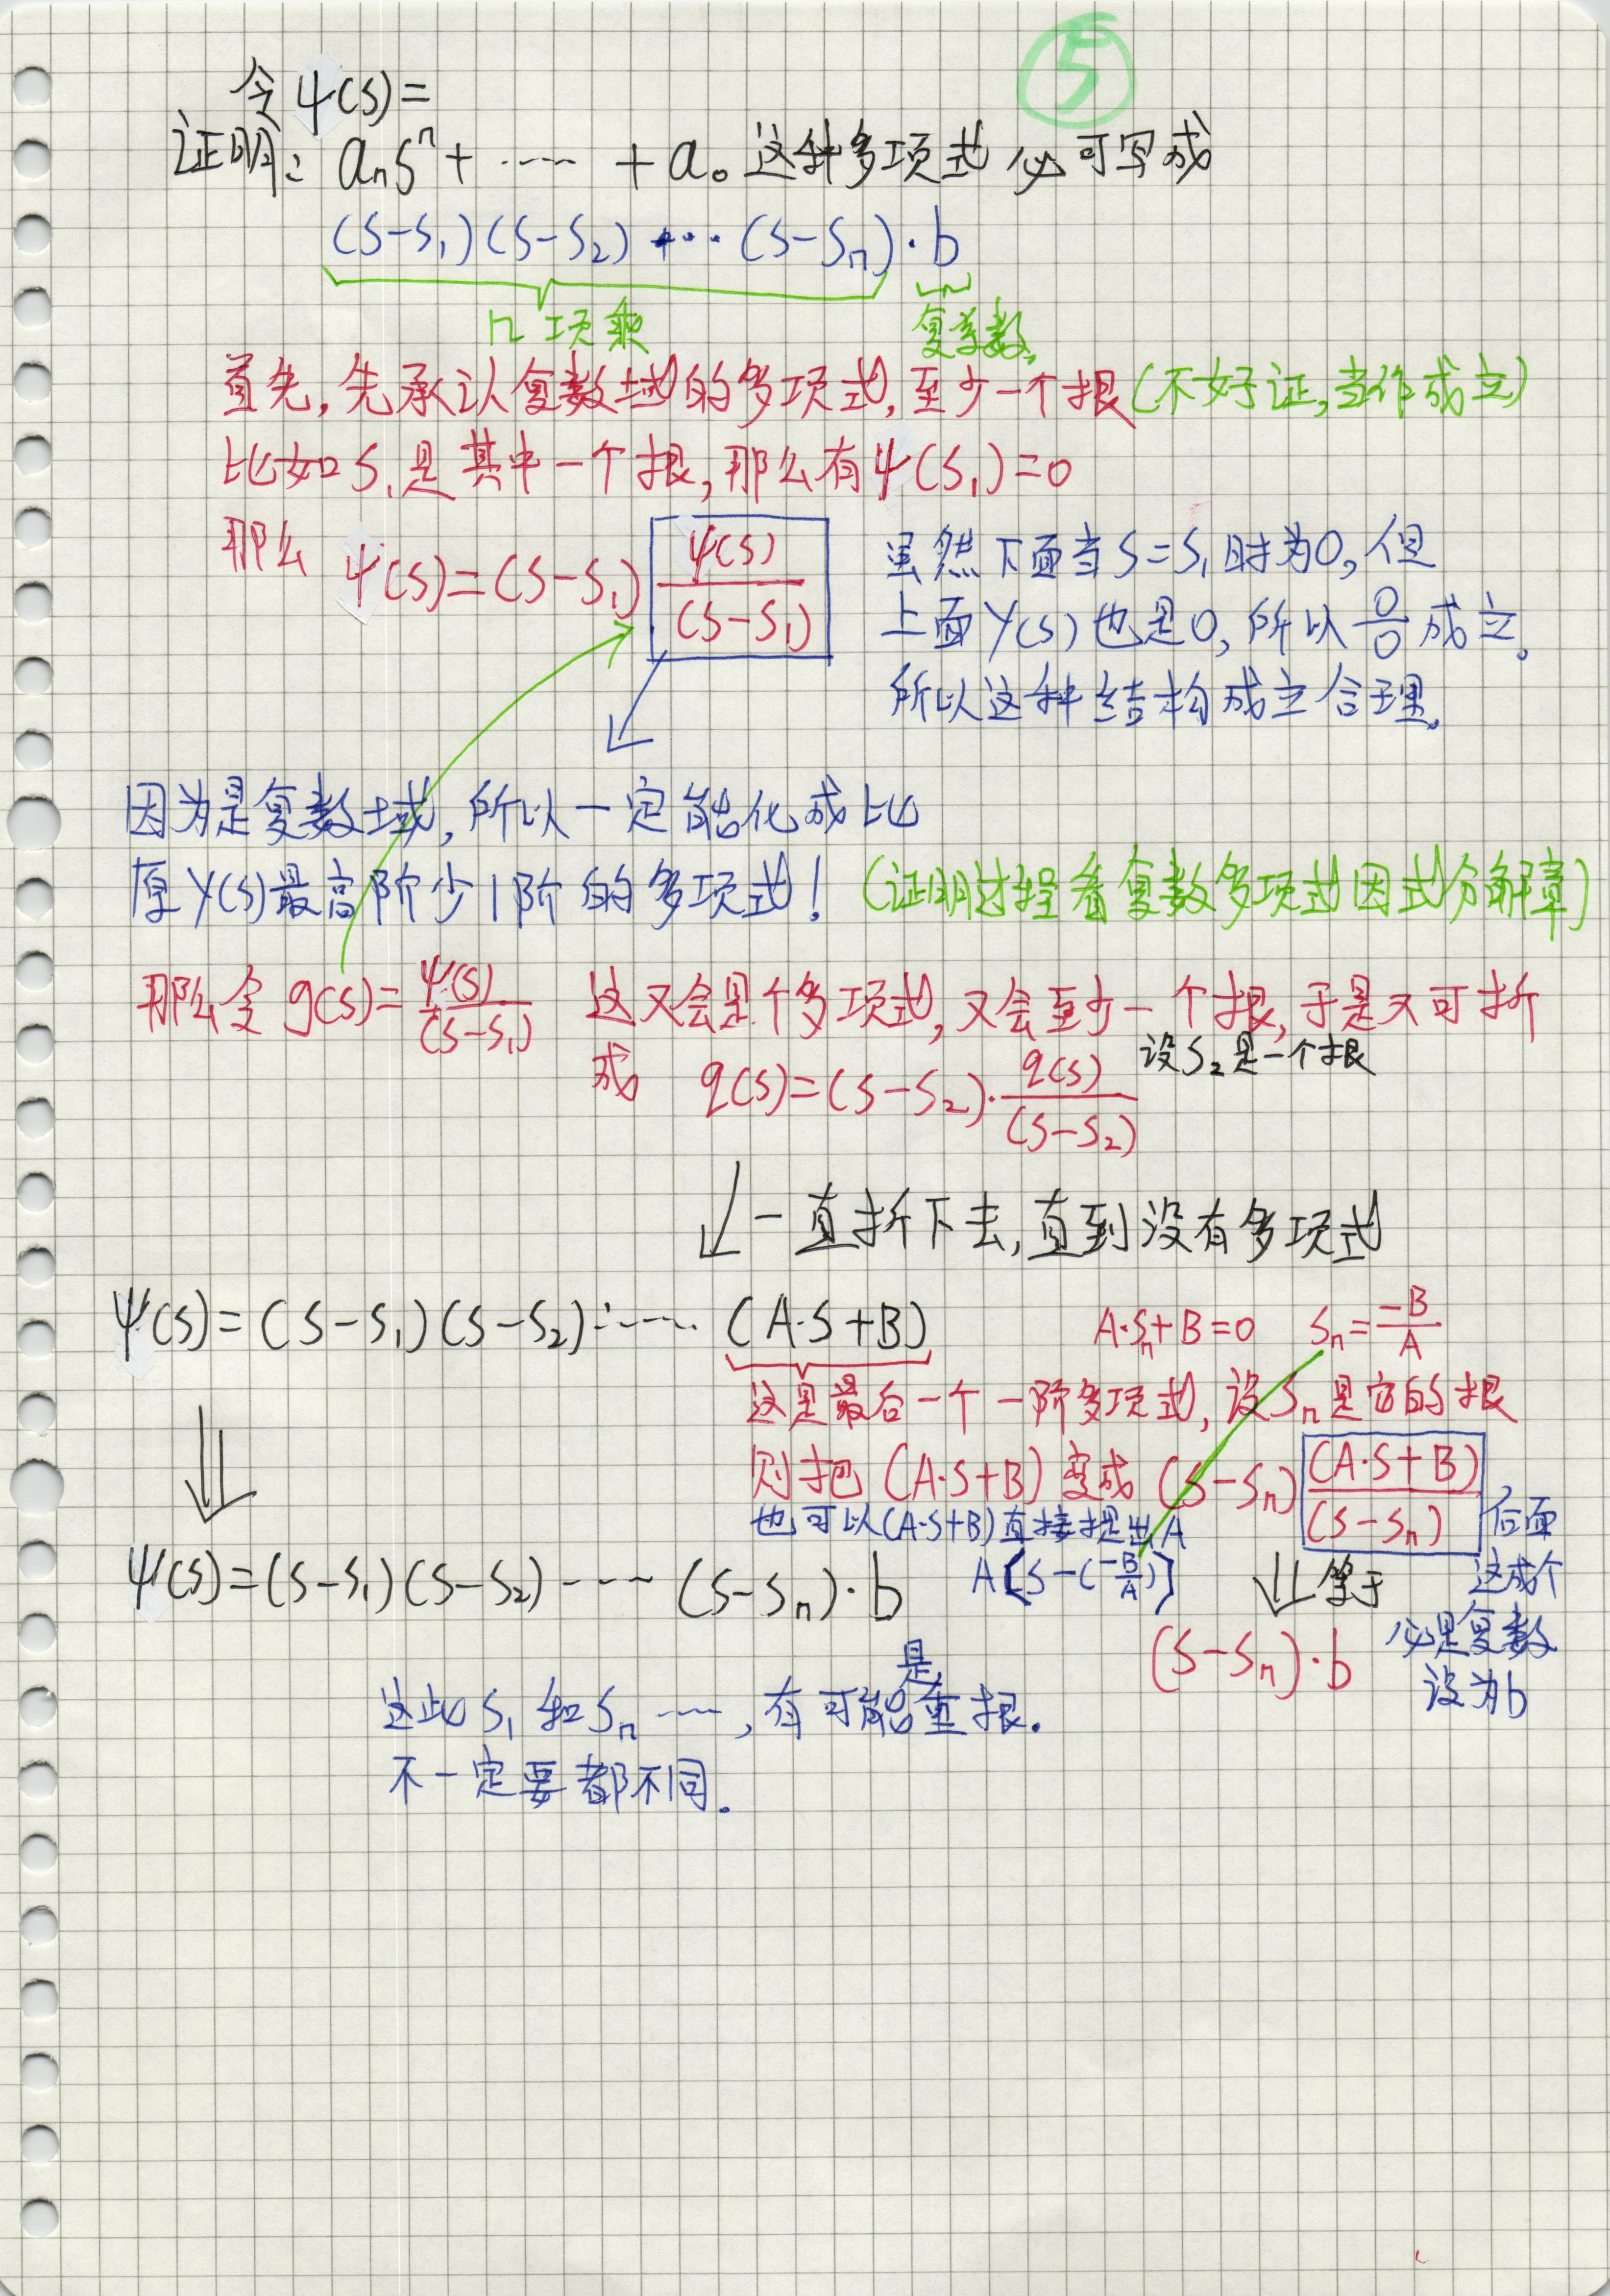 ⑤
令ψ(s)=
证明: aₙsⁿ+ ······ +a₀ 这种多项式 必可写成
(s-s₁)(s-s₂) ···· (s-sₙ)·b
n 项乘
复常数
首先, 先承认复数域的多项式, 至少一个根(不好证, 当作成立)
比如s₁是其中一个根, 那么有ψ(s₁)=0
那么 ψ(s)=(s-s₁) ψ(s)/(s-s₁)
虽然下面当s=s₁时为0, 但
上面Y(s)也是0, 所以 0/0 成立。
所以这种结构成立合理。
因为是复数域, 所以一定能化成比
原Y(s)最高阶少1阶的多项式!
(证明过程看复数多项式因式分解章)
那么令 g(s)=ψ(s)/(s-s₁) 这又会是个多项式, 又会至少一个根, 于是又可拆
成 q(s)=(s-s₂)·q(s)/(s-s₂)
设s₂是一个根
↓一直拆下去, 直到没有多项式
ψ(s)=(s-s₁)(s-s₂)······(A·s+B)
A·sₙ+B=0 sₙ=-B/A
这是最后一个一阶多项式, 设sₙ是它的根
则把(A·s+B)变成 (s-sₙ) (A·s+B)/(s-sₙ)
后面
这成个
必是复数
设为b
也可以(A·s+B)直接提出A
A[s-(-B/A)]
⇓等于
(s-sₙ)·b
ψ(s)=(s-s₁)(s-s₂)---- (s-sₙ)·b
这此s₁和sₙ ----, 有可能是重根.
不一定要都不同.